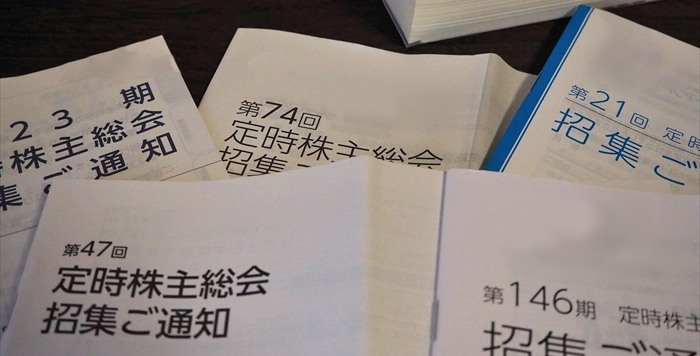 23 期
時株主総会
集ご通知
第74回
定時株主総会
招集ご
第21回 定時
招集ご
第47回
定時株主総会
招集ご通知
第146期 定時株主
招集ご通